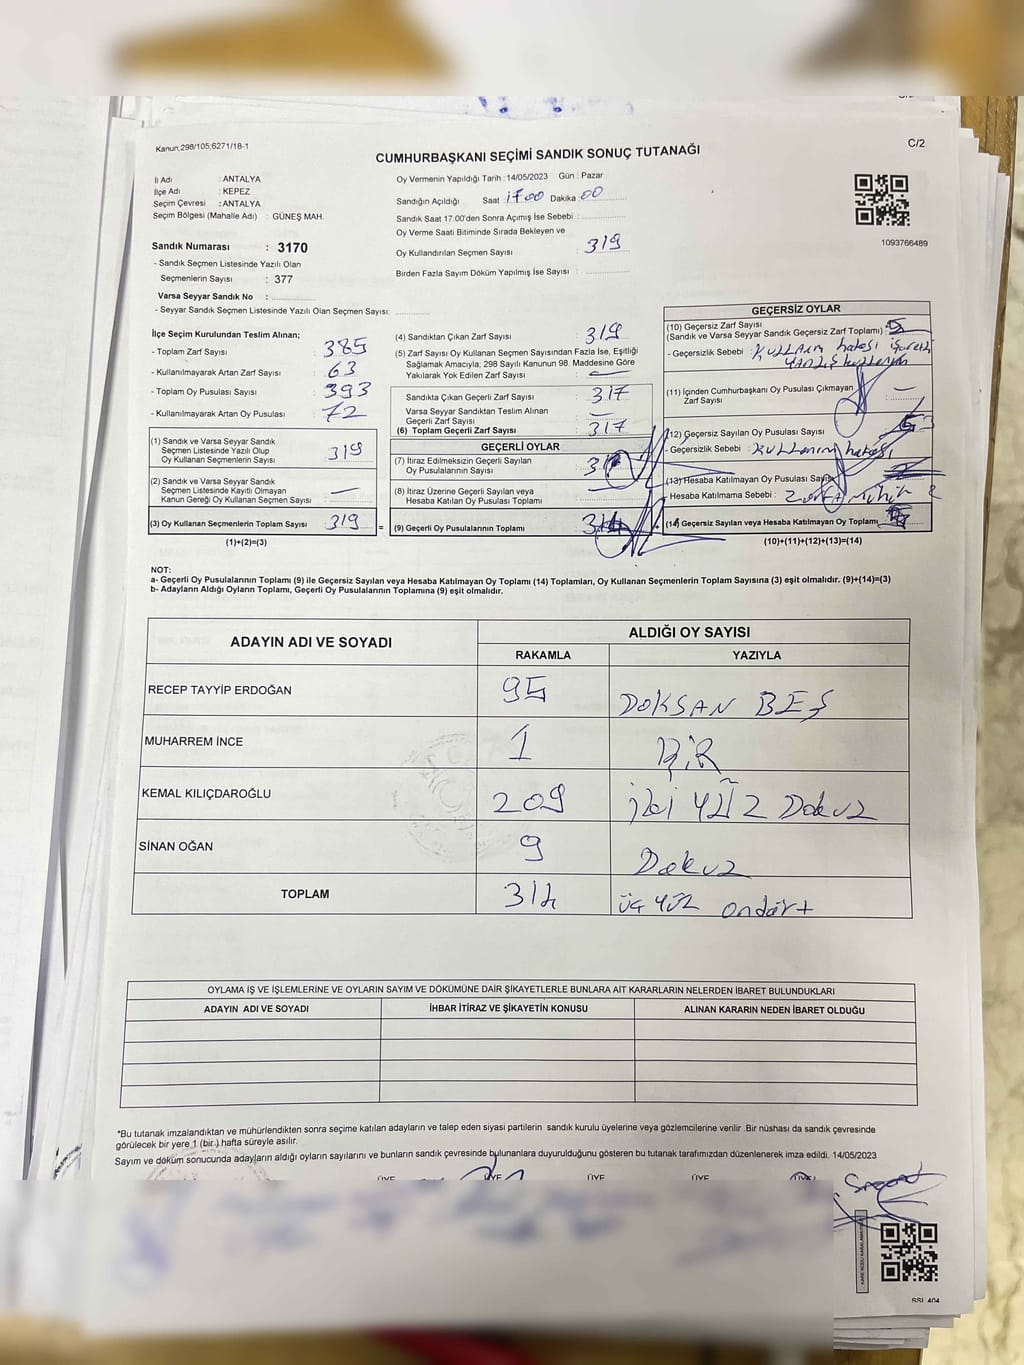 Kanun;298/105;6271/18-1
C/2
CUMHURBAŞKANI SEÇİMİ SANDIK SONUÇ TUTANAĞI
İl Adı : ANTALYA
İlçe Adı : KEPEZ
Seçim Çevresi : ANTALYA
Seçim Bölgesi (Mahalle Adı) : GÜNEŞ MAH.
Sandık Numarası : 3170
- Sandık Seçmen Listesinde Yazılı Olan
Seçmenlerin Sayısı : 377
Varsa Seyyar Sandık No :
- Seyyar Sandık Seçmen Listesinde Yazılı Olan Seçmen Sayısı:
Oy Vermenin Yapıldığı Tarih : 14/05/2023 Gün : Pazar
Sandığın Açıldığı Saat 17:00 Dakika 00
Sandık Saat 17.00'den Sonra Açımış İse Sebebi :
Oy Verme Saati Bitiminde Sırada Bekleyen ve
Oy Kullandırılan Seçmen Sayısı : 319
Birden Fazla Sayım Döküm Yapılmış İse Sayısı :
1093766489
İlçe Seçim Kurulundan Teslim Alınan;
- Toplam Zarf Sayısı : 385
- Kullanılmayarak Artan Zarf Sayısı : 63
- Toplam Oy Pusulası Sayısı : 393
- Kullanılmayarak Artan Oy Pusulası : 72
(1) Sandık ve Varsa Seyyar Sandık
Seçmen Listesinde Yazılı Olup
Oy Kullanan Seçmenlerin Sayısı : 319
(2) Sandık ve Varsa Seyyar Sandık
Seçmen Listesinde Kayıtlı Olmayan
Kanun Gereği Oy Kullanan Seçmen Sayısı : —
(3) Oy Kullanan Seçmenlerin Toplam Sayısı : 319 =
(1)+(2)=(3)
(4) Sandıktan Çıkan Zarf Sayısı : 319
(5) Zarf Sayısı Oy Kullanan Seçmen Sayısından Fazla İse, Eşitliği
Sağlamak Amacıyla; 298 Sayılı Kanunun 98. Maddesine Göre
Yakılarak Yok Edilen Zarf Sayısı : —
Sandıkta Çıkan Geçerli Zarf Sayısı : 317
Varsa Seyyar Sandıktan Teslim Alınan
Geçerli Zarf Sayısı : —
(6) Toplam Geçerli Zarf Sayısı : 317
GEÇERLİ OYLAR
(7) İtiraz Edilmeksizin Geçerli Sayılan
Oy Pusulalarının Sayısı :
(8) İtiraz Üzerine Geçerli Sayılan veya
Hesaba Katılan Oy Pusulası Toplamı :
(9) Geçerli Oy Pusulalarının Toplamı : 314
GEÇERSİZ OYLAR
(10) Geçersiz Zarf Sayısı
(Sandık ve Varsa Seyyar Sandık Geçersiz Zarf Toplamı) :
- Geçersizlik Sebebi : Kullanım hatası
(11) İçinden Cumhurbaşkanı Oy Pusulası Çıkmayan
Zarf Sayısı : —
(12) Geçersiz Sayılan Oy Pusulası Sayısı
- Geçersizlik Sebebi : Kullanım hatası
(13) Hesaba Katılmayan Oy Pusulası Sayısı
Hesaba Katılmama Sebebi :
(14) Geçersiz Sayılan veya Hesaba Katılmayan Oy Toplamı
(10)+(11)+(12)+(13)=(14)
NOT:
a- Geçerli Oy Pusulalarının Toplamı (9) ile Geçersiz Sayılan veya Hesaba Katılmayan Oy Toplamı (14) Toplamları, Oy Kullanan Seçmenlerin Toplam Sayısına (3) eşit olmalıdır. (9)+(14)=(3)
b- Adayların Aldığı Oyların Toplamı, Geçerli Oy Pusulalarının Toplamına (9) eşit olmalıdır.
ADAYIN ADI VE SOYADI
ALDIĞI OY SAYISI
RAKAMLA YAZIYLA
RECEP TAYYİP ERDOĞAN 95 DOKSAN BEŞ
MUHARREM İNCE 1 BİR
KEMAL KILIÇDAROĞLU 209 iki YÜZ Dokuz
SİNAN OĞAN 9 Dokuz
TOPLAM 314 üç YÜZ ondört
OYLAMA İŞ VE İŞLEMLERİNE VE OYLARIN SAYIM VE DÖKÜMÜNE DAİR ŞİKAYETLERLE BUNLARA AİT KARARLARIN NELERDEN İBARET BULUNDUKLARI
ADAYIN ADI VE SOYADI İHBAR İTİRAZ VE ŞİKAYETİN KONUSU ALINAN KARARIN NEDEN İBARET OLDUĞU
*Bu tutanak imzalandıktan ve mühürlendikten sonra seçime katılan adayların ve talep eden siyasi partilerin sandık kurulu üyelerine veya gözlemcilerine verilir .Bir nüshası da sandık çevresinde
görülecek bir yere 1 (bir ) hafta süreyle asılır.
Sayım ve döküm sonucunda adayların aldığı oyların sayılarını ve bunların sandık çevresinde bulunanlara duyurulduğunu gösteren bu tutanak tarafımızdan düzenlenerek imza edildi. 14/05/2023
ÜYE ÜYE ÜYE ÜYE